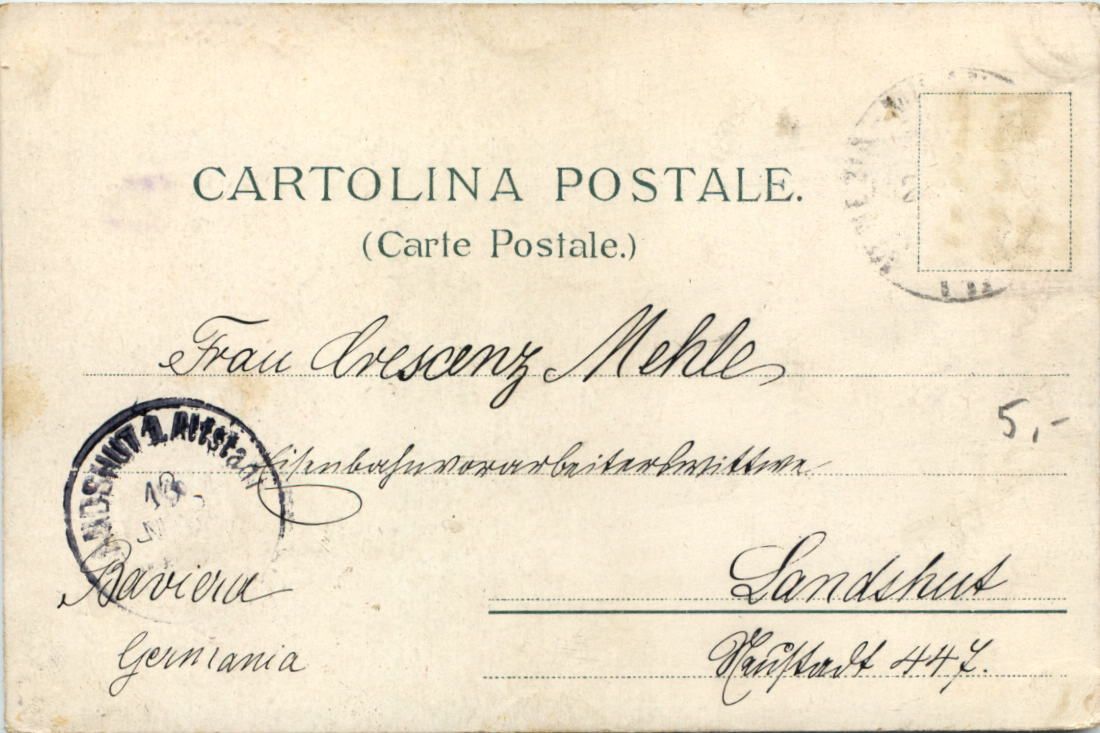 CARTOLINA POSTALE.
(Carte Postale.)
Frau Crescenz Mehle
5,-
LANDSHUT 1. Altstadt
Eisenbahnvorarbeiterswittwe
18
Landshut
Baviera
Neustadt 447.
Germania